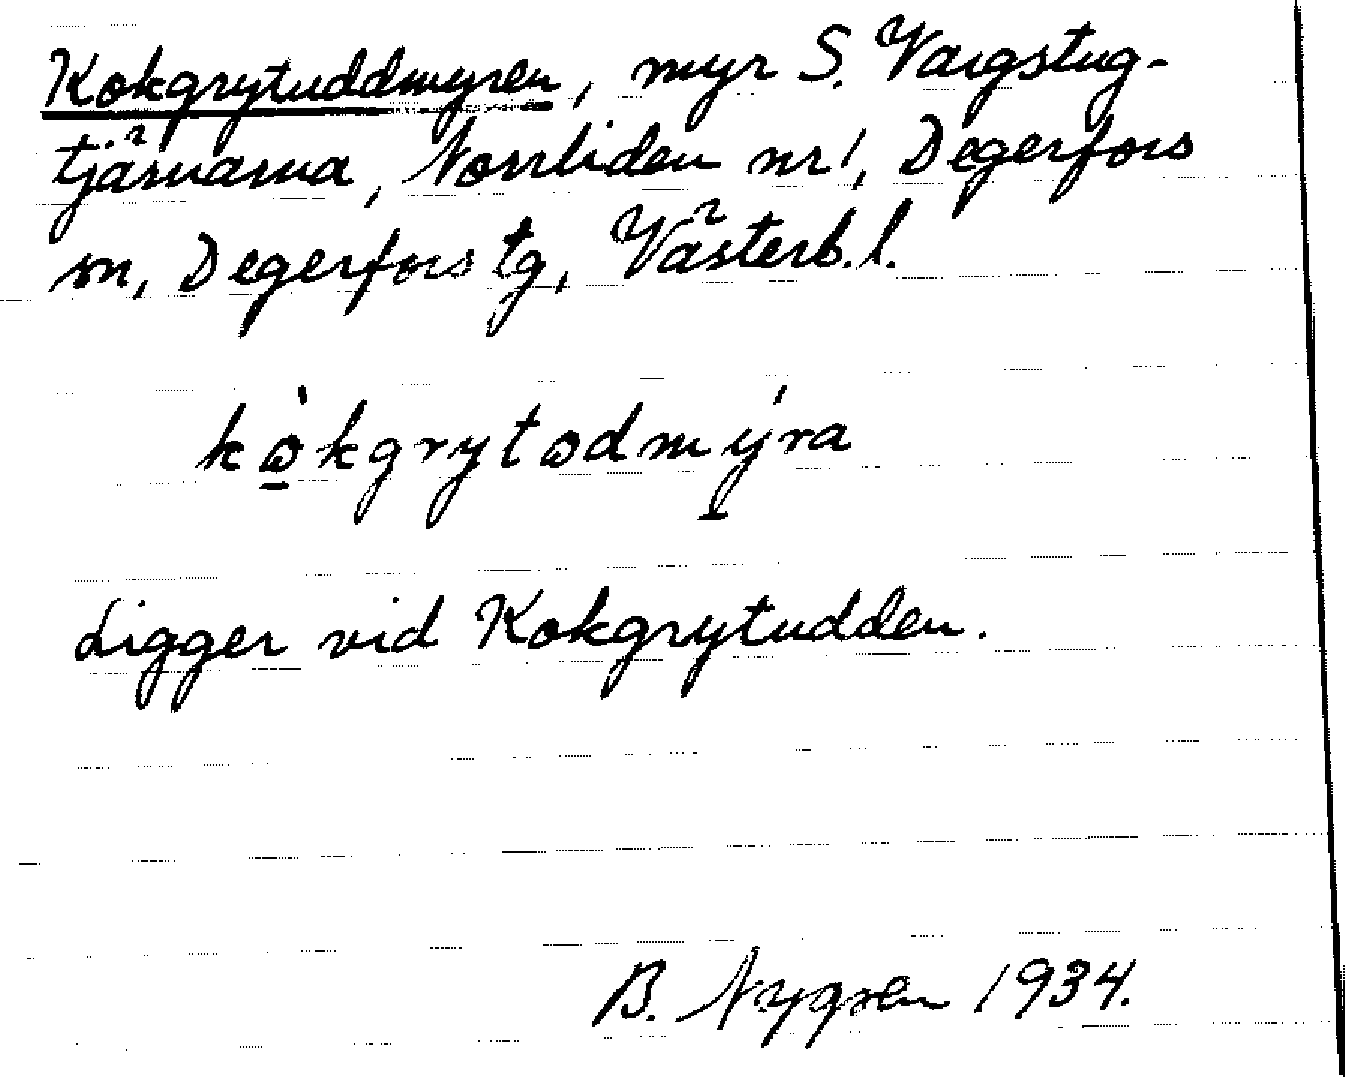 Kokgrytuddmyren, myr S. Vargstug-
tjärnarna, Norrliden nr 1, Degerfors
sn, Degerfors tg, Västerb. l.
kò̱kgrytodmýra
Ligger vid Kokgrytudden.
B. Nygren 1934.